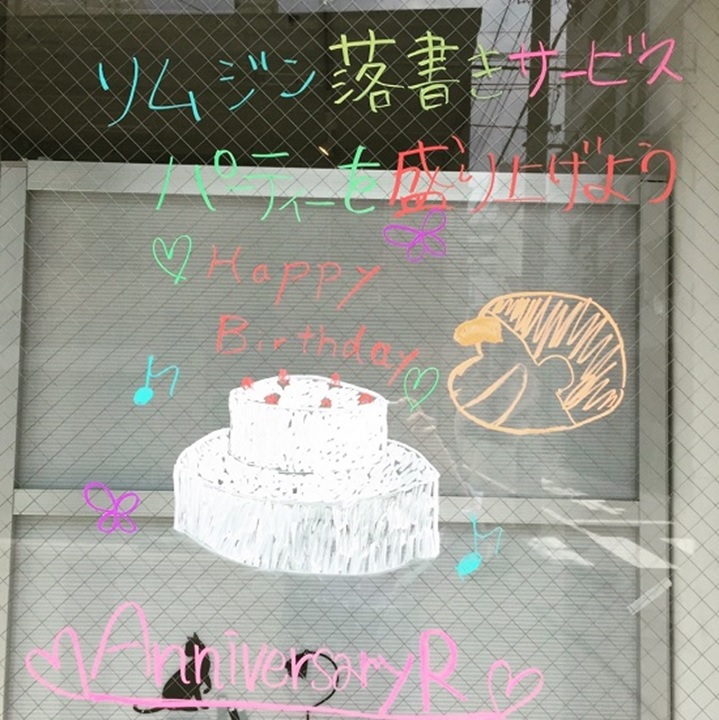 リムジン落書きサービス
パーティーを盛り上げよう
Happy
Birthday
Anniversary R